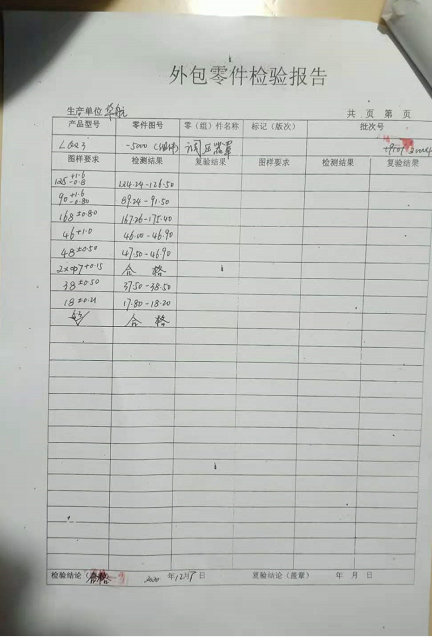 外包零件检验报告
生产单位 华航 共 页 第 页
产品型号 零件图号 零（组）件名称 标记（版次） 批次号
-5000 调压器罩
图样要求 检测结果 复验结果 图样要求 检测结果 复验结果
125 +1.6 -0.8 124.24-126.50
90 +1.6 -0.80 89.24-91.50
168 ±0.80
46 +1.0 46.00-46.90
48 ±0.50 47.50-48.90
2×φ7 +0.15 合格
38 ±0.50 37.50-38.50
18 ±0.21 17.80-18.20
合格
检验结论 2020 年 12 月 日 复验结论（盖章） 年 月 日